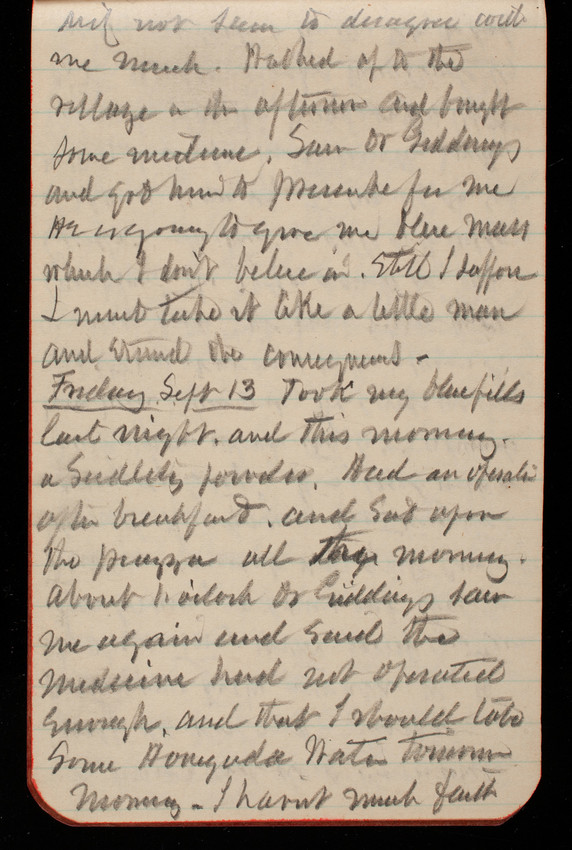 not seem to disagree with
me much. Walked up to the
village in the afternoon and bought
some medicine. Saw Dr Giddings
and got him to prescribe for me
He is going to give me blue mass
which I don't believe in. Still I suppose
I must take it like a little man
and stand the consequences -
Friday Sept 13 Took my blue pills
last night. and this morning.
a Seidlitz powder. Had an operation
after breakfast. and sat upon
the piazza all the morning.
About 1 oclock Dr Giddings saw
me again and said the
medicine had not operated
enough. and that I should take
some Hunyada Water tomorrow
morning - I havent much faith